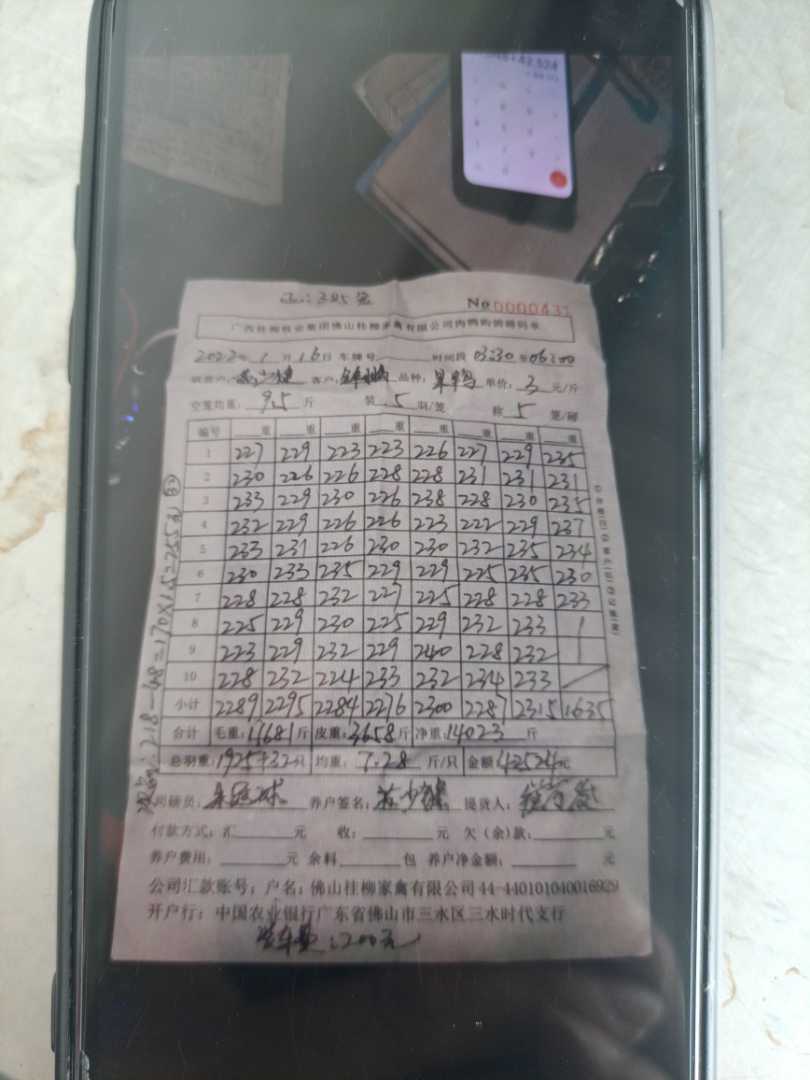 45+42,524
正心:385笼
No 0000431
广西桂柳牧业集团佛山桂柳家禽有限公司肉鸭购销磅码单
2022年1月16日 车牌号 时间段 03:30至06:00
客户: 品种: 单价:3元/斤
空笼均重:9.5斤 装5羽/笼 称5笼/磅
编号 重 重 重 重 重 重 重 重
1 227 229 223 223 226 227 229 235
2 230 226 226 228 228 231 231 231
3 233 229 230 226 238 228 230 235
4 232 229 226 226 223 222 229 237
5 233 231 226 230 230 232 235 234
6 230 233 235 229 229 225 235 230
7 228 228 232 227 225 228 228 233
8 225 229 230 225 229 232 233
9 223 229 232 229 240 228 232
10 228 232 224 233 232 234 233
小计 2289 2295 2284 2276 2300 2287 2315 1635
合计 毛重:17681斤 皮重:3658斤 净重:14023斤
总羽重:1925+32只 均重:7.28斤/只 金额42524元
司磅员: 养户签名: 提货人:
付款方式:汇 元 收: 元 欠(余)款: 元
养户费用: 元 余料 包 养户净金额: 元
公司汇款账号:户名:佛山桂柳家禽有限公司44-440101040016929
开户行:中国农业银行广东省佛山市三水区三水时代支行
车费:1200元
218-48=170×1.5=255元